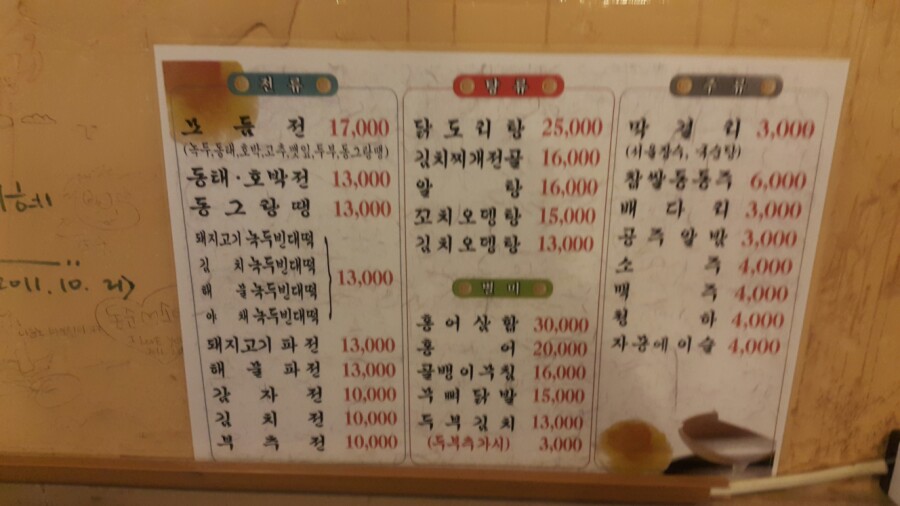 전류
모듬전 17,000
(녹두,동태,호박,고추,깻잎,두부,동그랑땡)
동태·호박전 13,000
동그랑땡 13,000
돼지고기 녹두빈대떡
김치 녹두빈대떡
해물 녹두빈대떡
야채 녹두빈대떡
13,000
돼지고기파전 13,000
해물파전 13,000
감자전 10,000
김치전 10,000
부추전 10,000
탕류
닭도리탕 25,000
김치찌개전골 16,000
알탕 16,000
꼬치오뎅탕 15,000
김치오뎅탕 13,000
별미
홍어삼합 30,000
홍어 20,000
골뱅이무침 16,000
무뼈닭발 15,000
두부김치 13,000
(두부추가시) 3,000
주류
막걸리 3,000
(서울장수, 국순당)
찹쌀동동주 6,000
배다리 3,000
공주알밤 3,000
소주 4,000
맥주 4,000
청하 4,000
자몽에이슬 4,000
2011.10.